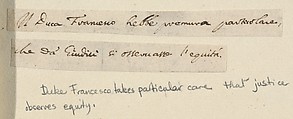 Il Duca Francesco hebbe premura particolare,
che da' Giudici si osservasse l'equità.
Duke Francesco takes particular care that justice
observes equity.